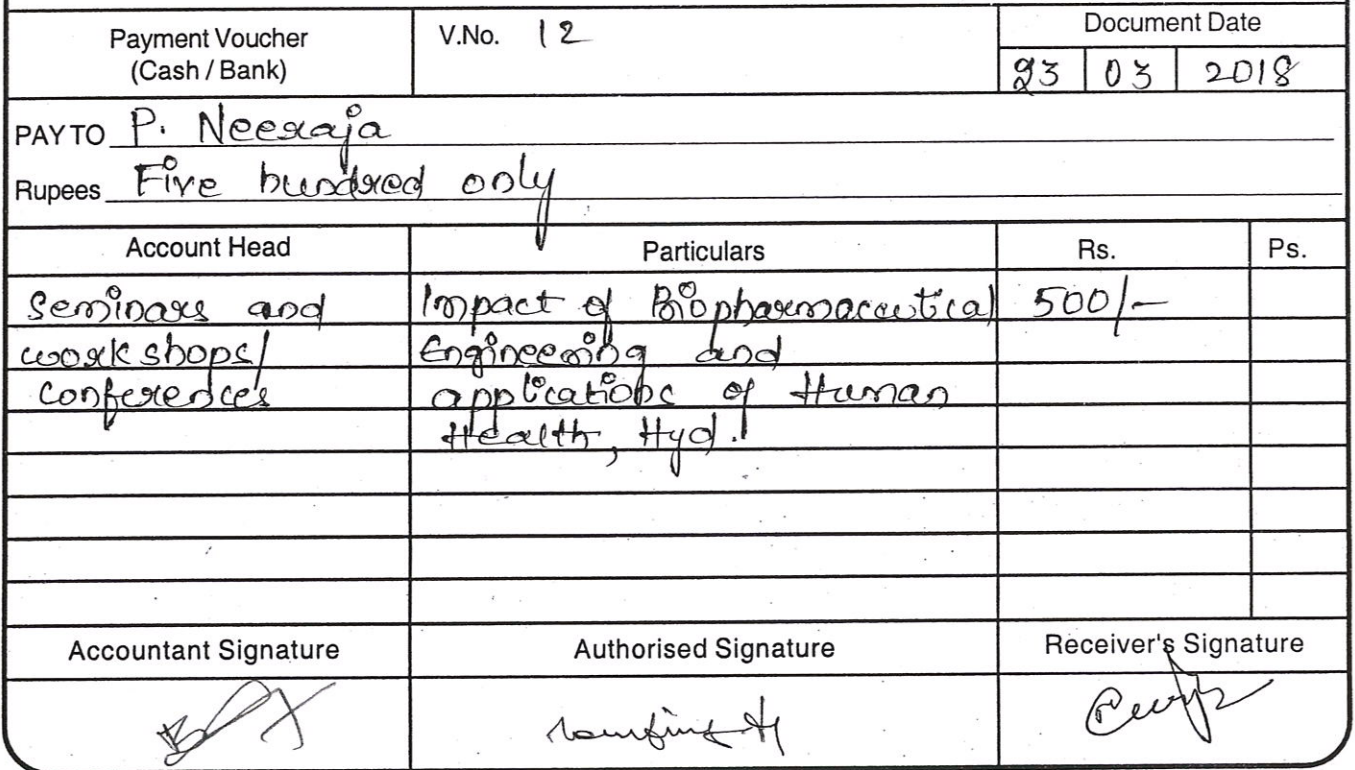 Payment Voucher
(Cash / Bank)
V.No. 12
Document Date
23 03 2018
PAY TO P. Neeraja
Rupees Five hundred only
Account Head Particulars Rs. Ps.
Seminars and Impact of Biopharmaceutical 500/-
workshops/ Engineering and
conferences applications of Human
Health, Hyd.
Accountant Signature Authorised Signature Receiver's Signature